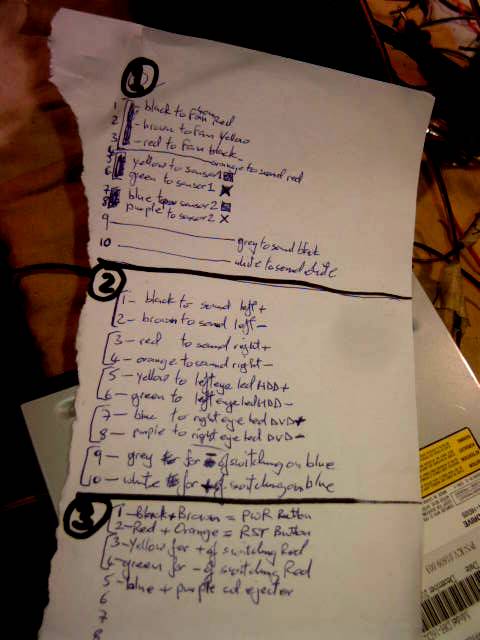 1
1 - black to Fan Red
2 - brown to Fan Yellow
3 - red to Fan black
4 orange to sound red
5 yellow to sensor 1
6 green to sensor 1 x
7 blue to sensor 2
8 purple to sensor 2 x
9 grey to sound black
10 white to sound white
2
1 - black to sound left +
2 - brown to sound left -
3 - red to sound right +
4 - orange to sound right -
5 - yellow to left eye led HDD +
6 - green to left eye led HDD -
7 - blue to right eye led DVD +
8 - purple to right eye led DVD -
9 - grey for - of switching on blue
10 - white for + of switching on blue
3
1 - Black + Brown = PWR Button
2 - Red + Orange = RST Button
3 - Yellow for + of switching Red
4 - green for - of switching Red
5 - blue + purple cd ejector
6
7
8